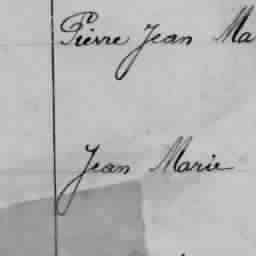 Pierre Jean Ma
Jean Marie